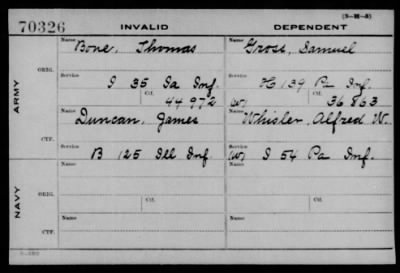 (3-H-5)
70326 INVALID DEPENDENT
Name Bone, Thomas Name Gross, Samuel
ARMY
ORIG.
Service Service
I 35 Ia Inf. H 139 Pa Inf.
Ctf. 44 972 (W) Ctf. 36 863
Name Duncan, James Name Whisler, Alfred W.
CTF.
Service Service
B 125 Ill Inf. (W) I 54 Pa Inf.
NAVY
Name Name
ORIG.
Service Service
Ctf. Ctf.
Name Name
CTF.